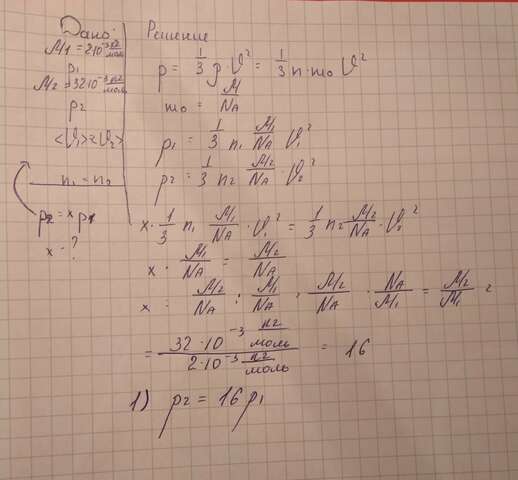 Дано:
M1 = 2·10⁻³ кг/моль
p₁
M2 = 32·10⁻³ кг/моль
p2
<V₁>=<V₂>
n₁ = n₂
p2 = x p1
x - ?
Решение
p = 1/3 ρ·V² = 1/3 n·m₀ V²
m₀ = M/NA
p₁ = 1/3 n₁ M₁/NA V₁²
p2 = 1/3 n2 M2/NA · V₂²
x · 1/3 n₁ M₁/NA · V₁² = 1/3 n2 M2/NA · V₂²
x · M₁/NA = M2/NA
x = M2/NA : M₁/NA = M2/NA · NA/M₁ = M2/M₁ =
= 32·10⁻³ кг/моль / 2·10⁻³ кг/моль = 16
1) p2 = 16 p₁